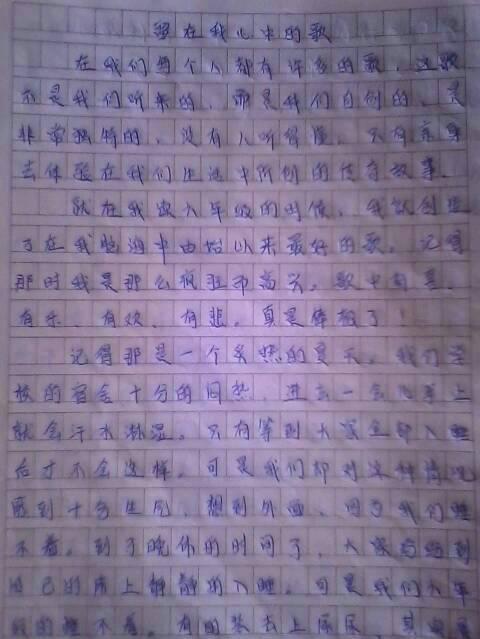 留在我心中的歌
在我们每个人都有许多的歌，这歌
不是我们听来的，而是我们自创的，是
非常独特的，没有人听得懂，只有亲身
去体验在我们生活中所创的传奇故事。
就在我六年级的时候，我就创造
了在我脑海中由始以来最好的歌。记得
那时我是那么疯狂和高兴，歌中有喜、
有乐、有欢、有悲，真是棒极了！
记得那是一个炎热的夏天，我们学
校的宿舍十分的闷热，进去一会儿身上
就会汗水淋湿。只有等到大家全部入睡
后才不会这样。可是我们却对这种情况
感到十分生气，想到外面，因为我们睡
不着。到了晚休的时间了，大家都到
自己的床上静静的入睡。可是我们六年
级的睡不着。有的装去上尿尿，其